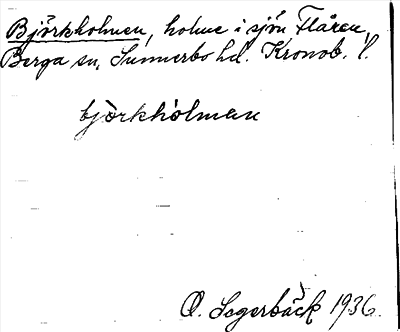 Björkholmen, holme i sjön Flåren,
Berga sn, Sunnerbo hd. Kronob. l.
bjò̀rkhòlmen
O. Segerbäck 1936.